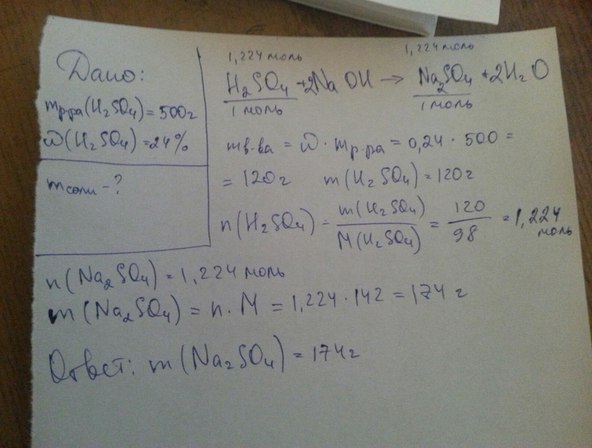 Дано:
mр-ра(H₂SO₄)=500г
ω(H₂SO₄)=24%
mсоли-?
1,224 моль 1,224 моль
H₂SO₄+2NaOH→Na₂SO₄+2H₂O
1 моль 1 моль
mв-ва = ω · mр-ра = 0,24 · 500 =
= 120г m(H₂SO₄)=120г
n(H₂SO₄) = m(H₂SO₄)/M(H₂SO₄) = 120/98 = 1,224 моль
n(Na₂SO₄)=1,224 моль
m(Na₂SO₄) = n · M = 1,224 · 142 = 174 г
Ответ: m(Na₂SO₄) = 174г